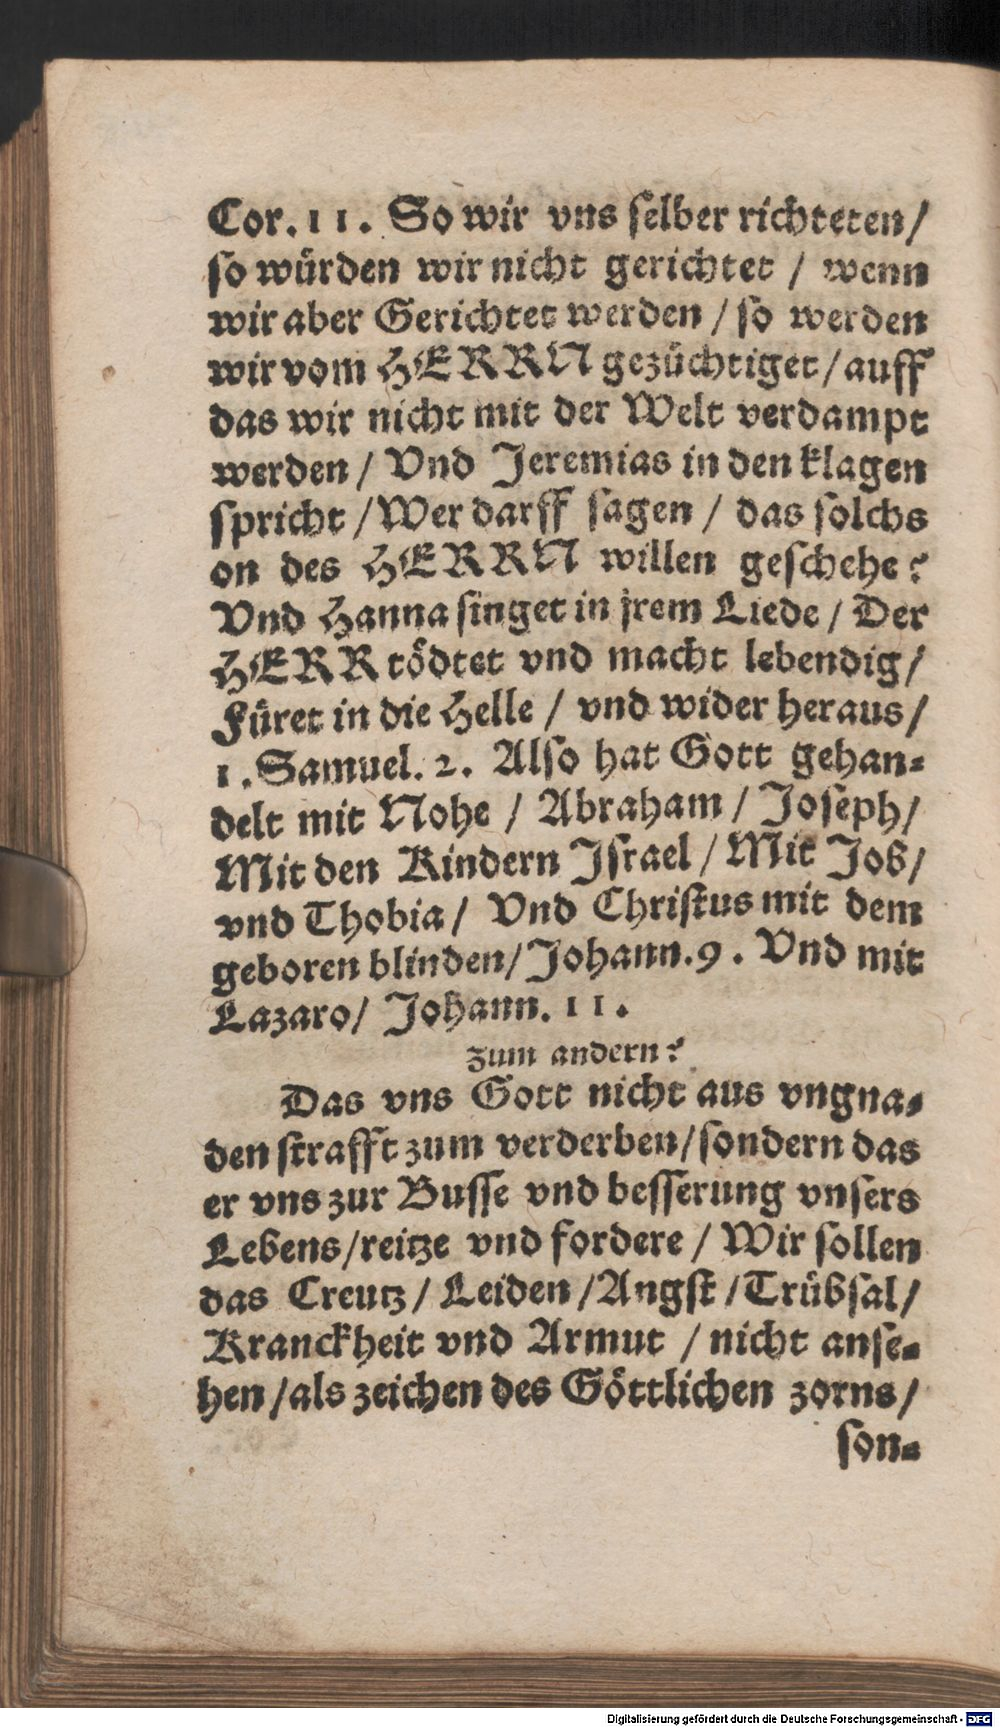 Cor. 11. So wir vns ſelber richteten/
ſo würden wir nicht gerichtet / wenn
wir aber Gerichtet werden / ſo werden
wir vom HERRN gezüchtiget / auff
das wir nicht mit der Welt verdampt
werden / Vnd Jeremias in den klagen
ſpricht / Wer darff ſagen / das ſolchs
on des HERRN willen geſchehe?
Vnd Hanna ſinget in jrem Liede / Der
HERR tödtet vnd macht lebendig /
Füret in die Helle / vnd wider heraus /
1. Samuel. 2. Alſo hat Gott gehan-
delt mit Nohe / Abraham / Joſeph /
Mit den Kindern Jſrael / Mit Job /
vnd Thobia / Vnd Chriſtus mit dem
geboren blinden / Johann. 9. Vnd mit
Lazaro / Johann. 11.
zum andern?
Das vns Gott nicht aus vngna-
den ſtrafft zum verderben / ſondern das
er vns zur Buſſe vnd beſſerung vnſers
Lebens / reitze vnd fordere / Wir ſollen
das Creutz / Leiden / Angſt / Trübſal /
Kranckheit vnd Armut / nicht anſe-
hen / als zeichen des Göttlichen zorns /
ſon-
Digitalisierung gefördert durch die Deutsche Forschungsgemeinschaft - DFG